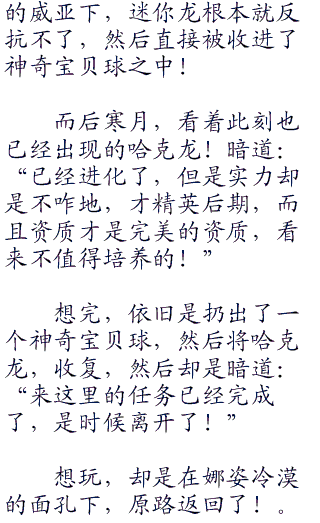 的威亚下，迷你龙根本就反
抗不了，然后直接被收进了
神奇宝贝球之中！
而后寒月，看着此刻也
已经出现的哈克龙！暗道：
“已经进化了，但是实力却
是不咋地，才精英后期，而
且资质才是完美的资质，看
来不值得培养的！”
想完，依旧是扔出了一
个神奇宝贝球，然后将哈克
龙，收复，然后却是暗道：
“来这里的任务已经完成
了，是时候离开了！”
想玩，却是在娜姿冷漠
的面孔下，原路返回了！。